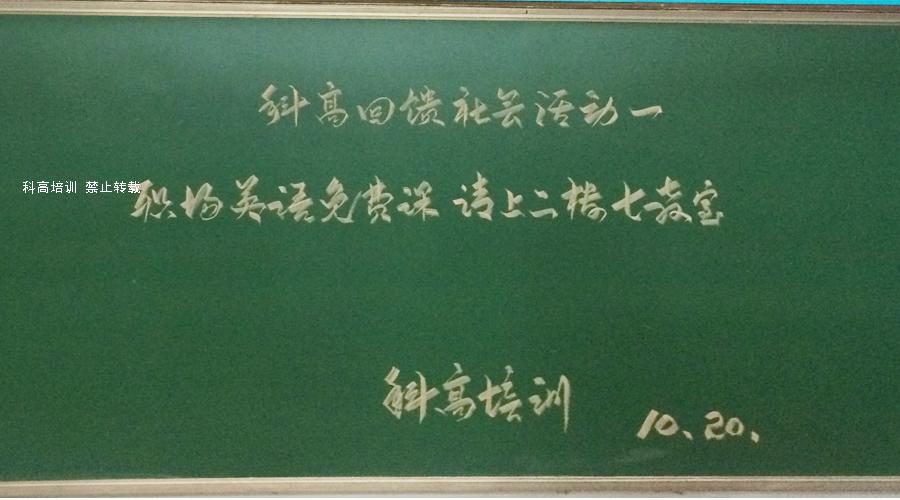 科高回馈社会活动一
科高培训 禁止转载
职场英语免费课 请上二楼七教室
科高培训
10、20、